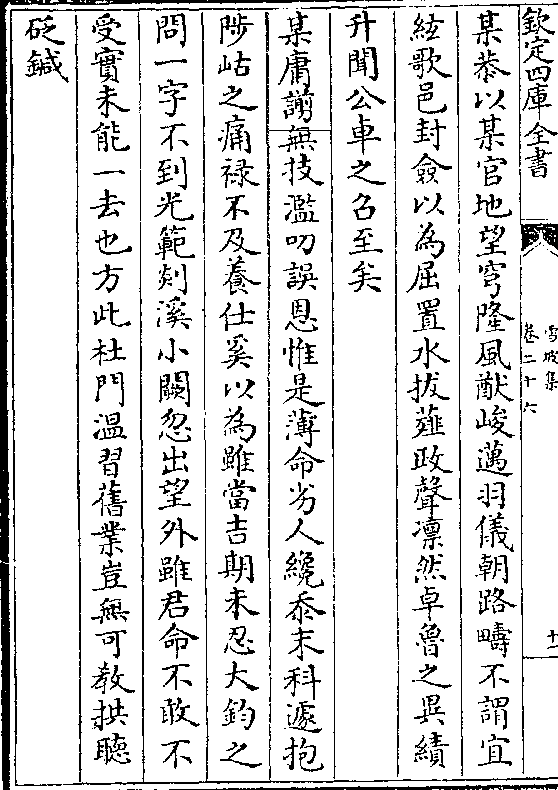 欽定四庫全書
雪坡集
卷二十六
十一
某恭以某官地望穹隆風猷峻邁羽儀朝路疇不謂宜
絃歌邑封僉以為屈置水拔薤政聲凛然卓魯之異績
升聞公車之召至矣
某庸謭無技濫叨誤恩惟是薄命劣人纔忝末科遽抱
陟岵之痛禄不及養仕奚以為雖當吉期未忍大鈞之
問一字不到光範剡溪小闕忽出望外雖君命不敢不
受實未能一去也方此杜門温習舊業豈無可教拱聽
砭鍼